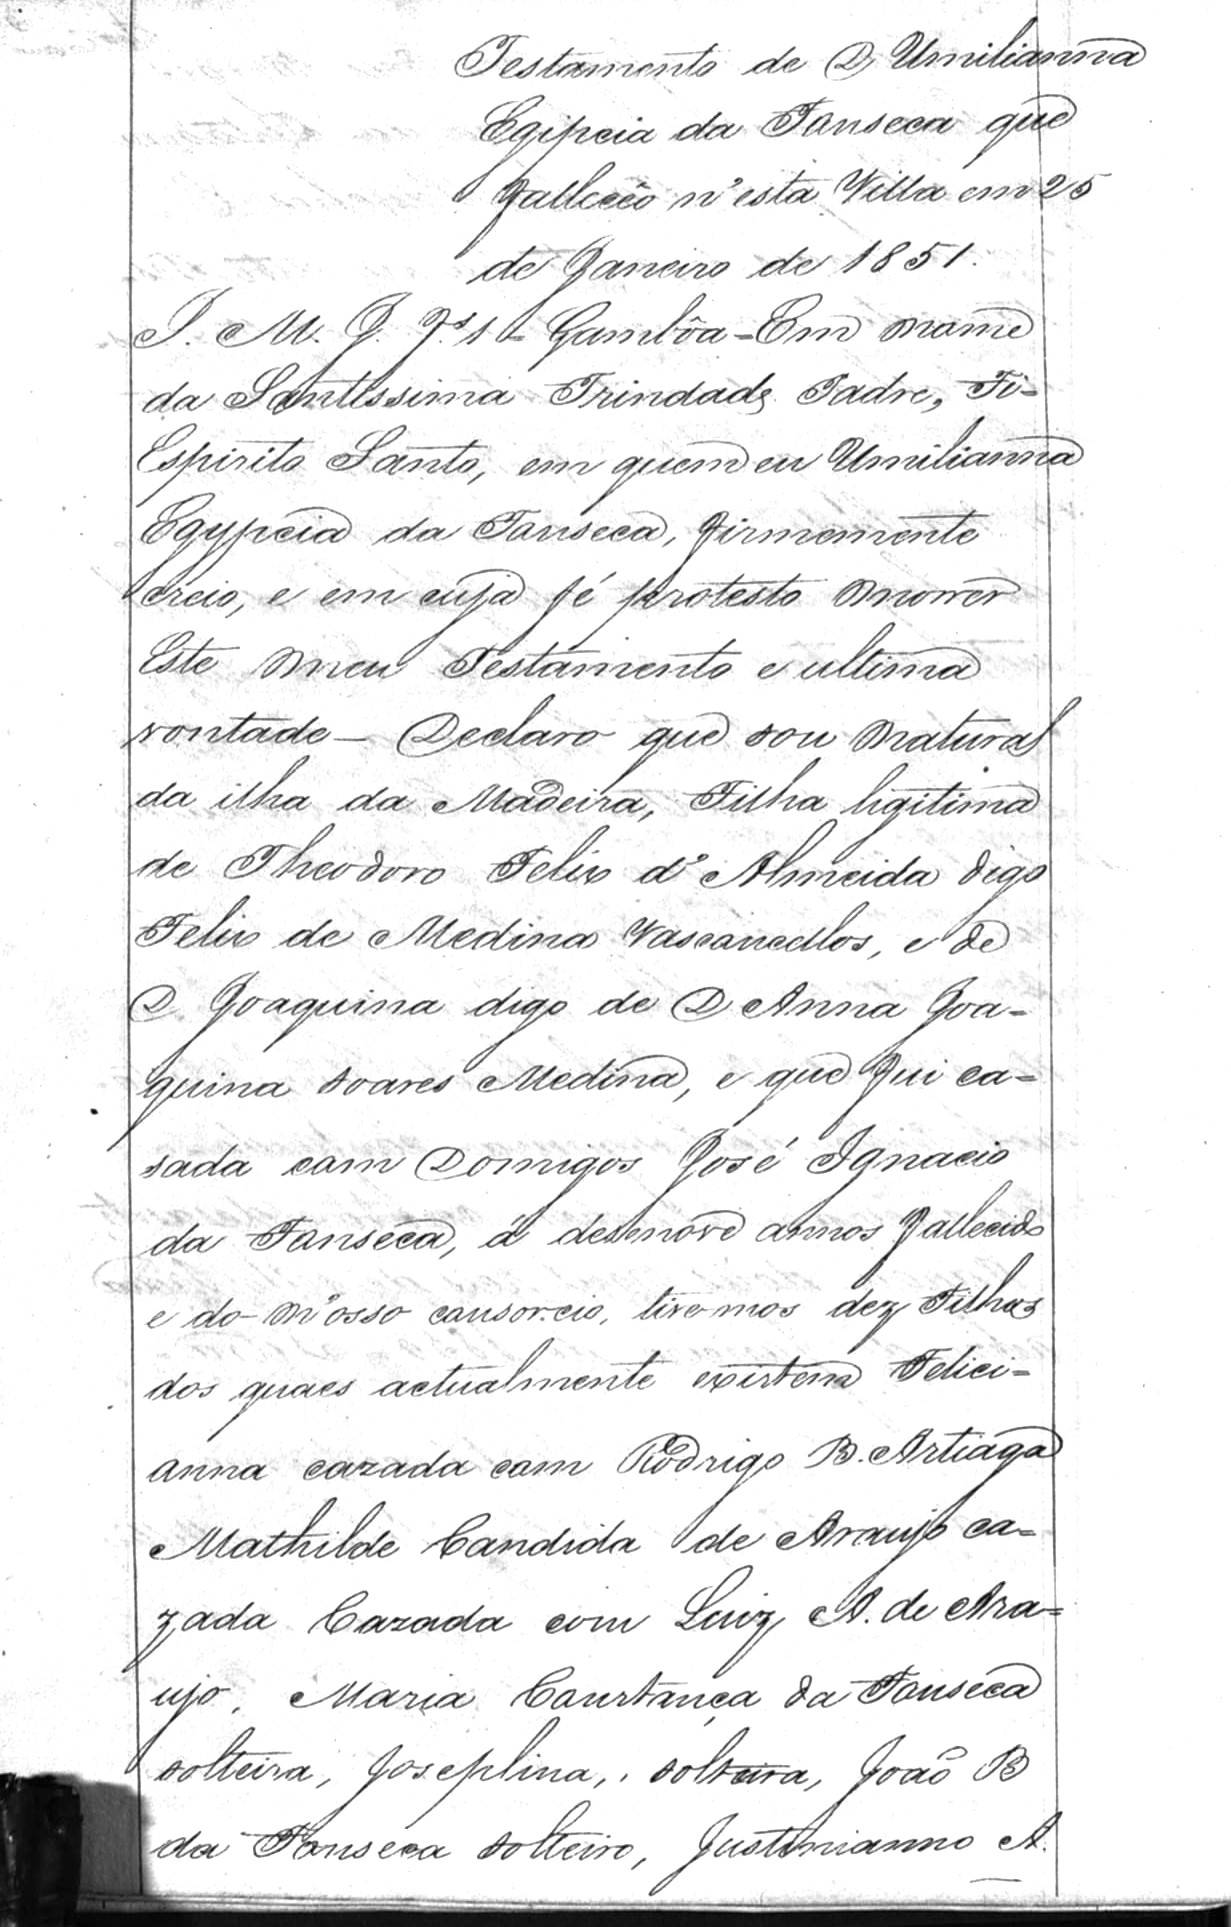 Testamento de D Umilianna
Egipcia da Fonseca que
falleceo n'esta Villa em 25
de Janeiro de 1851.
J. M. J. Gambôa - Em nome
da Santissima Trindade Padre, Fi=
Espirito Santo, em quem eu Umilianna
Egypcia da Fonseca, firmemente
creio, e em cuja fé protesto morrer
Este meu Testamento e ultima
vontade - Declaro que sou natural
da ilha da Madeira, Filha ligitima
de Theodoro Felix d'Almeida digo
Felix de Medina Vasconcellos, e de
D. Joaquina digo de D Anna Joa=
quina Soares Medina, e que fui ca=
sada com Domigos José Ignacio
da Fonseca, á desenove annos fallecido
e do n'osso consorcio, tivemos dez Filhos
dos quaes actualmente existem Felici=
anna cazada com Rodrigo B. Artiaga
Mathilde Candida de Araujo ca=
zada Cazada com Luiz A. de Ara=
ujo, Maria Constança da Fonseca
solteira, Josephina, solteira, João B
da Fonseca solteiro, Justinianno A.